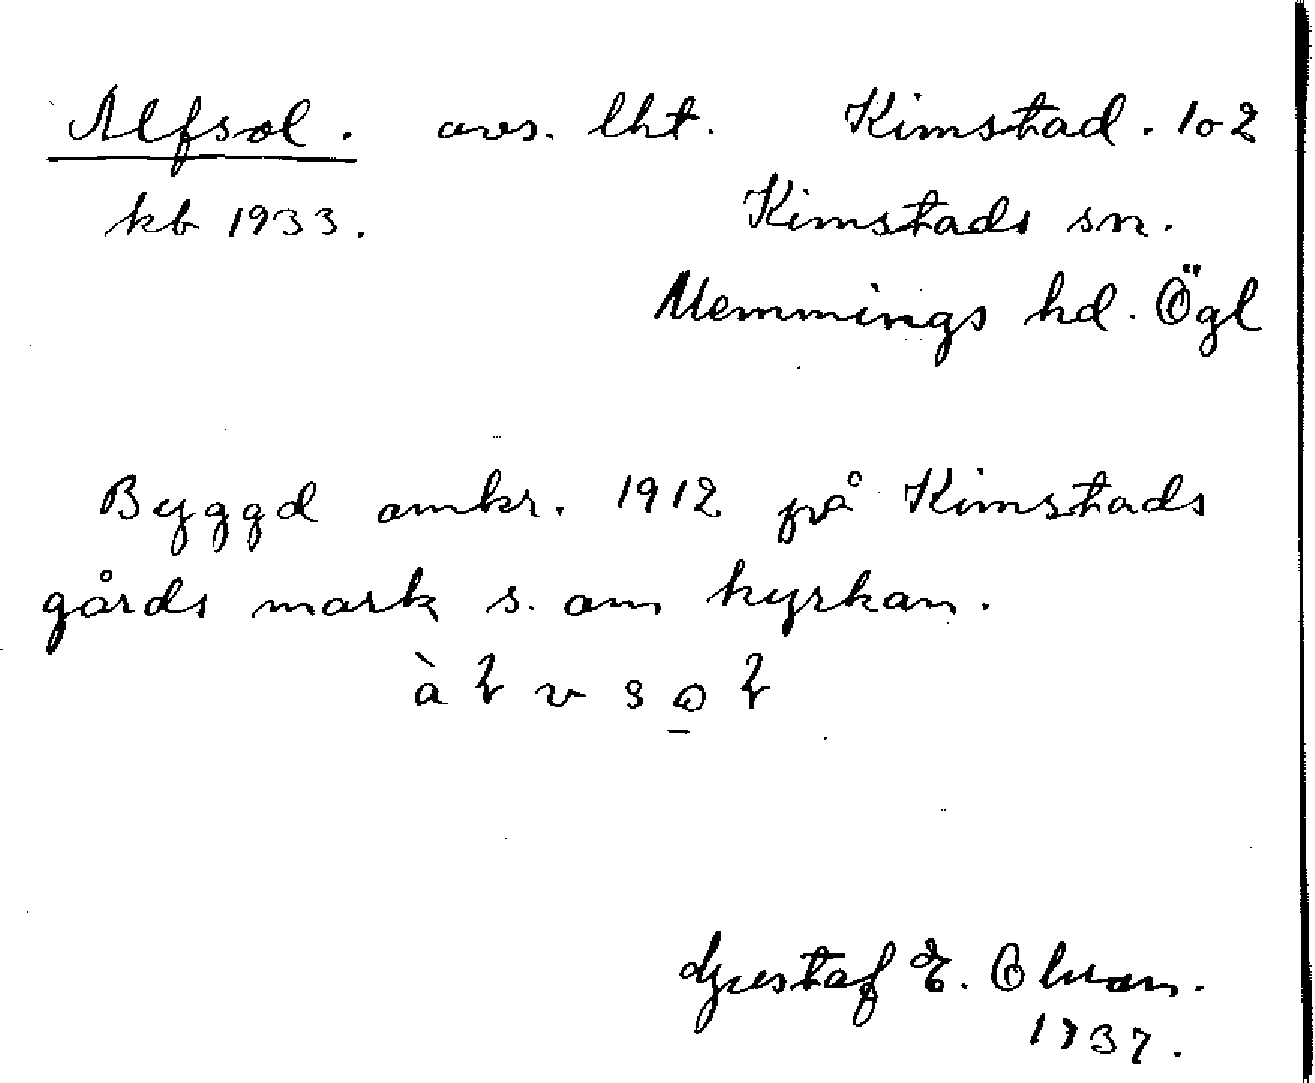 Alfsol. avs. lht. Kimstad. 1o2
kb 1933. Kimstads sn.
Memmings hd. Ögl
Byggd omkr. 1912 på Kimstads
gårds mark s. om kyrkan.
Gustaf E.
1937.